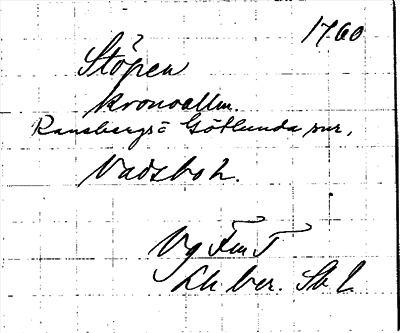 1760
Stöpen
kronoallm.
Ransbergs o Götlunda snr,
Vadsbo h.
Vg FmT
Lh ber. Sk 2